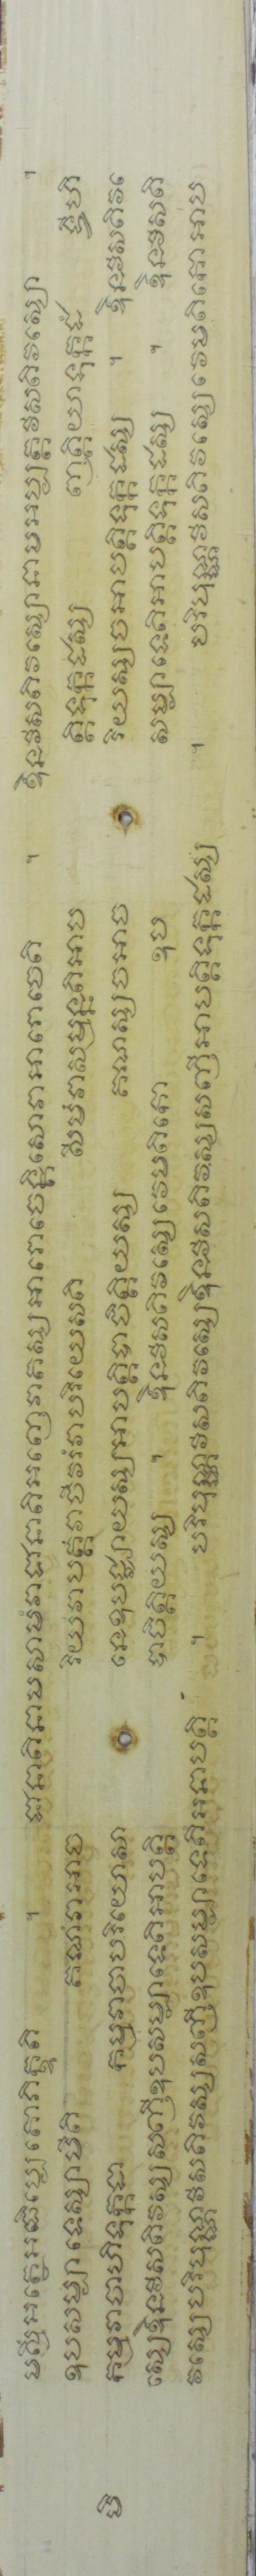 មស្មឹអត្ថេអធិប្បេតោភិក្ខូតិ ។ ជានាតិនាមសាមំវាជានាតិអញ្ញេវាតស្សអារោចេន្តិសោវាអារោចេតិ ។ ឩនវីសតិវស្សោនាមអប្បត្តវីសតិវស្សោ ។
ឧបសម្បាទេស្សាមីតិ គណំវាអាច រិយំវាបត្តំវាចីវរំវាបរិយេសតិ សីមំវាសម្មន្នតិអាប ត្តិទុក្កដស្ស ញត្តិយាទុក្កដំ ទ្វីហិ
កម្មវាចាហិទុក្កដា កម្មវាចាបរិយោសា នេឧបជ្ឈាយស្សអាបត្តិបាចិត្តិយស្ស គណស្សចអាច រិយស្សចអាបត្តិទុក្កដស្ស ។ ឩនវីសតិវ
ស្សេឩនវីសតិវស្សសញ្ញីឧបសម្បាទេតិអាបត្តិ បាចិត្តិយស្ស ។ ឩនវីសតិវស្សេវេមតិកោ ឧប សម្បាទេតិអាបត្តិទុក្កដស្ស ។ ឩនវីសតិ
វស្សេបរិបុណ្ណវីសតិវស្សសញ្ញីឧបសម្បាទេតិអនាបត្តិ ។ បរិបុណ្ណវីសតិវស្សេឩនវីសតិវស្សសញ្ញីអាបត្តិទុក្កដស្ស ។ បរិបុណ្ណវីសតិវស្សេវេមតិកោអាប